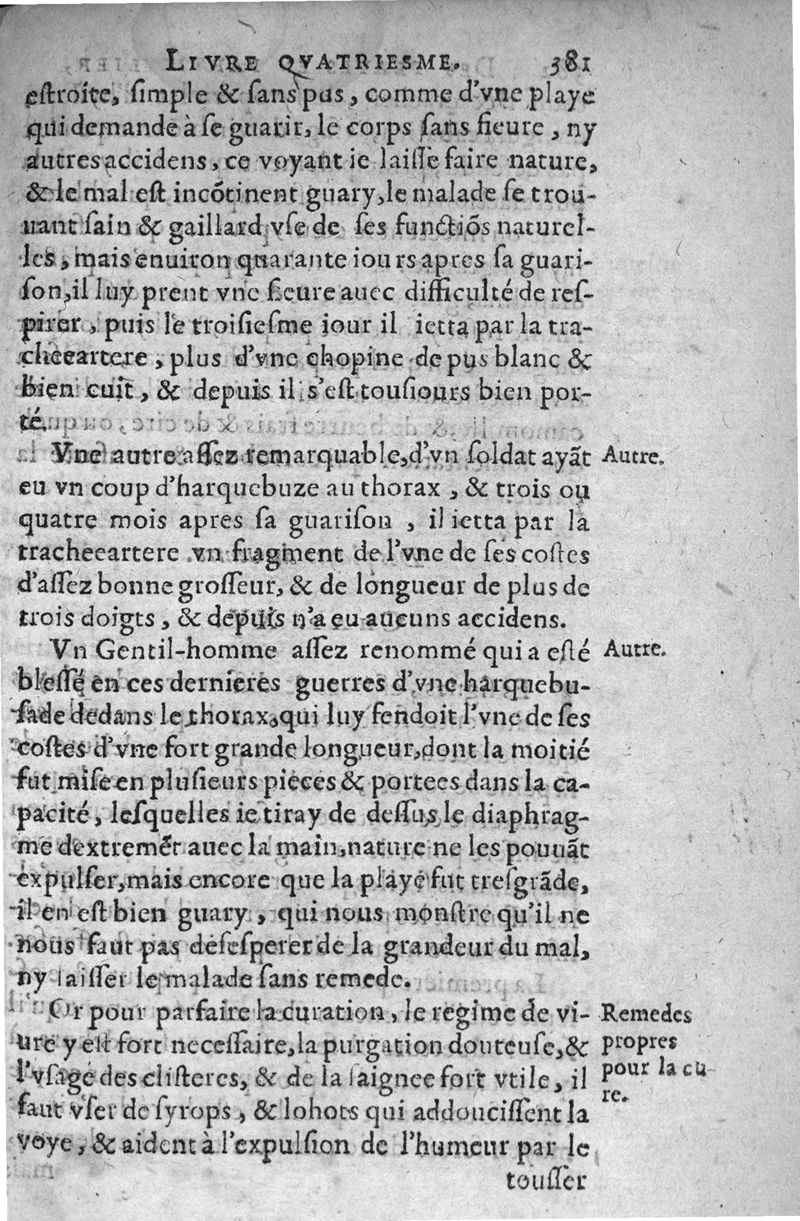 LIVRE QVATRIESME. 381
estroite, simple & sans pus, comme d'vne playe
qui demande à se guarir, le corps sans fieure, ny
autres accidens, ce voyant ie laisse faire nature,
& le mal est incõtinent guary, le malade se trou-
uant sain & gaillard vse de ses functiõs naturel-
les, mais enuiron quarante iours apres sa guari-
son, il luy prent vne fieure auec difficulté de res-
pirer, puis le troisiesme jour il ietta par la tra-
cheeartere, plus d'vne chopine de pus blanc &
bien cuit, & depuis il s'est tousiours bien por-
té.
Vne autre assez remarquable, d'vn soldat ayãt Autre.
eu vn coup d'harquebuze au thorax, & trois ou
quatre mois apres sa guarison, il ietta par la
tracheeartere vn fragment de l'vne de ses costes
d'assez bonne grosseur, & de longueur de plus de
trois doigts, & depuis n'a eu aucuns accidens.
Vn Gentil-homme assez renommé qui a esté Autre.
blessé en ces dernieres guerres d'vne harquebu-
sade dedans le thorax, qui luy fendoit l'vne de ses
costes d'vne fort grande longueur, dont la moitié
fut mise en plusieurs pieces & portees dans la ca-
pacité, lesquelles ie tiray de dessus le diaphrag-
me dextremẽt auec la main, nature ne les pouuãt
expulser, mais encore que la playe fut tresgrãde,
il en est bien guary, qui nous monstre qu'il ne
nous faut pas desesperer de la grandeur du mal,
ny laisser le malade sans remede.
Or pour parfaire la curation, le regime de vi- Remedes
ure y est fort necessaire, la purgation douteuse, & propres
l'vsage des clisteres, & de la saignee fort vtile, il pour la cu
faut vser de syrops, & lohots qui addoucissent la re.
voye, & aident à l'expulsion de l'humeur par le
tousser